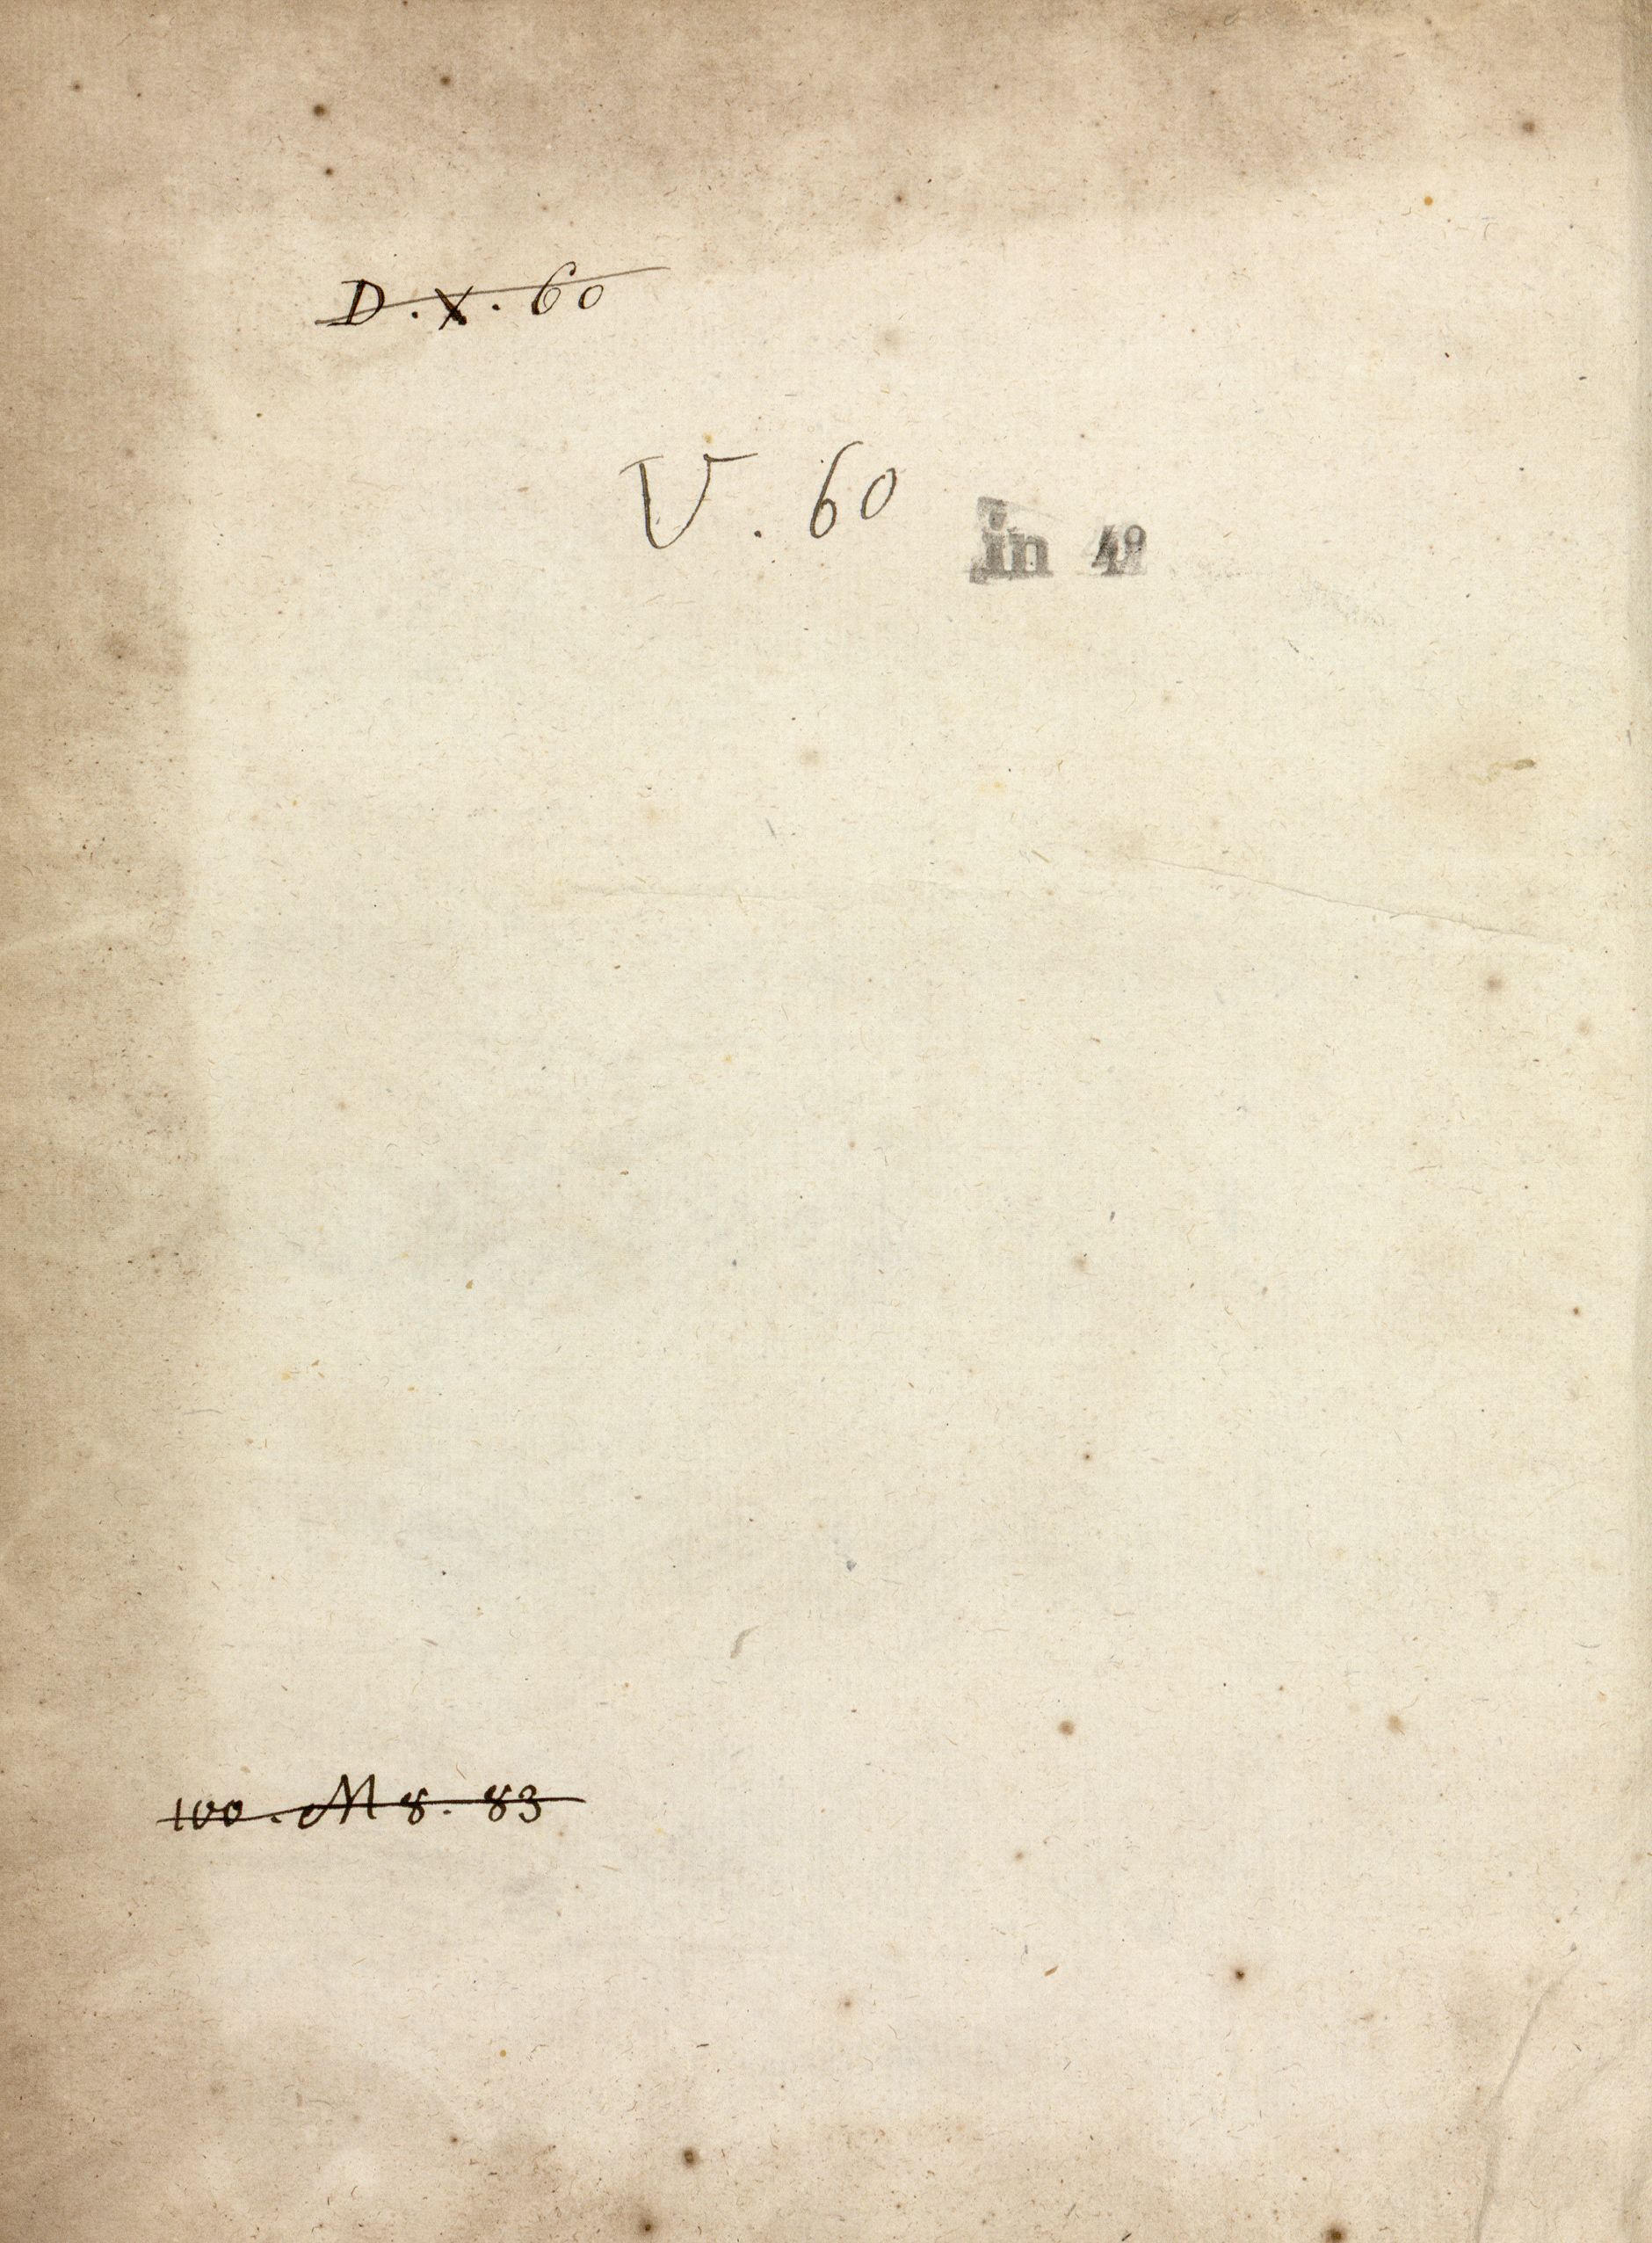 D. X. 60
V. 60 in 4º
100. M 8. 83